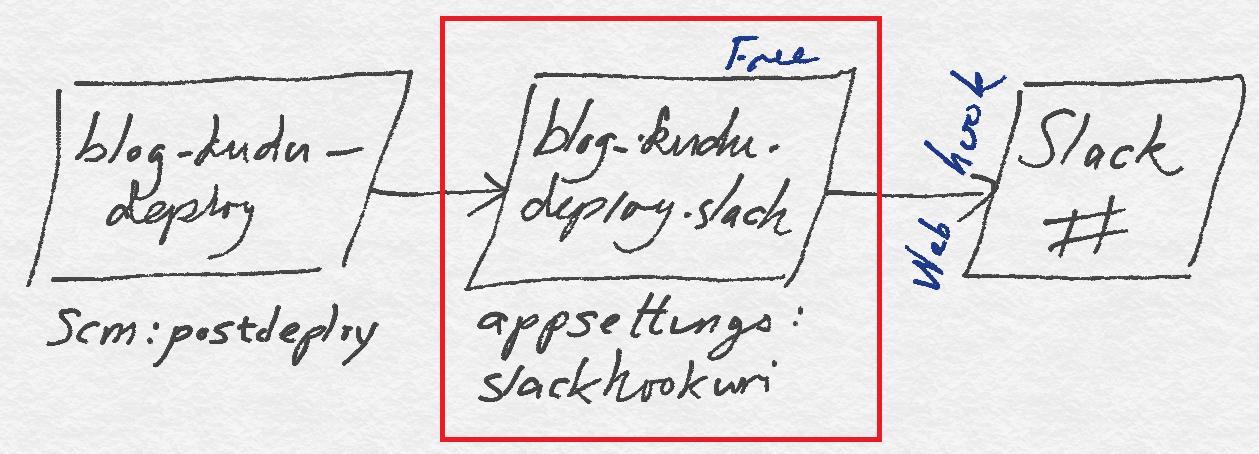 blog-kudu-
deploy
Scm:postdeploy
Free
blog-kudu.
deploy.slack
appsettings:
slackhookuri
Web hook
Slack
#